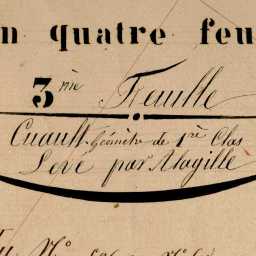 n quatre feu
3me Feuille
Cuault Géomètre de 1re Clas
Levé par Alagille